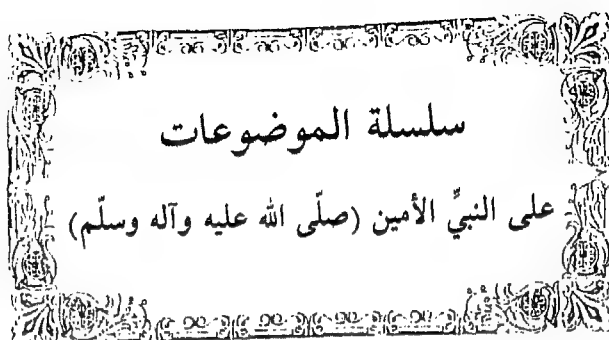 سلسلة الموضوعات
على النبيِّ الأمين (صلّى الله عليه وآله وسلّم)